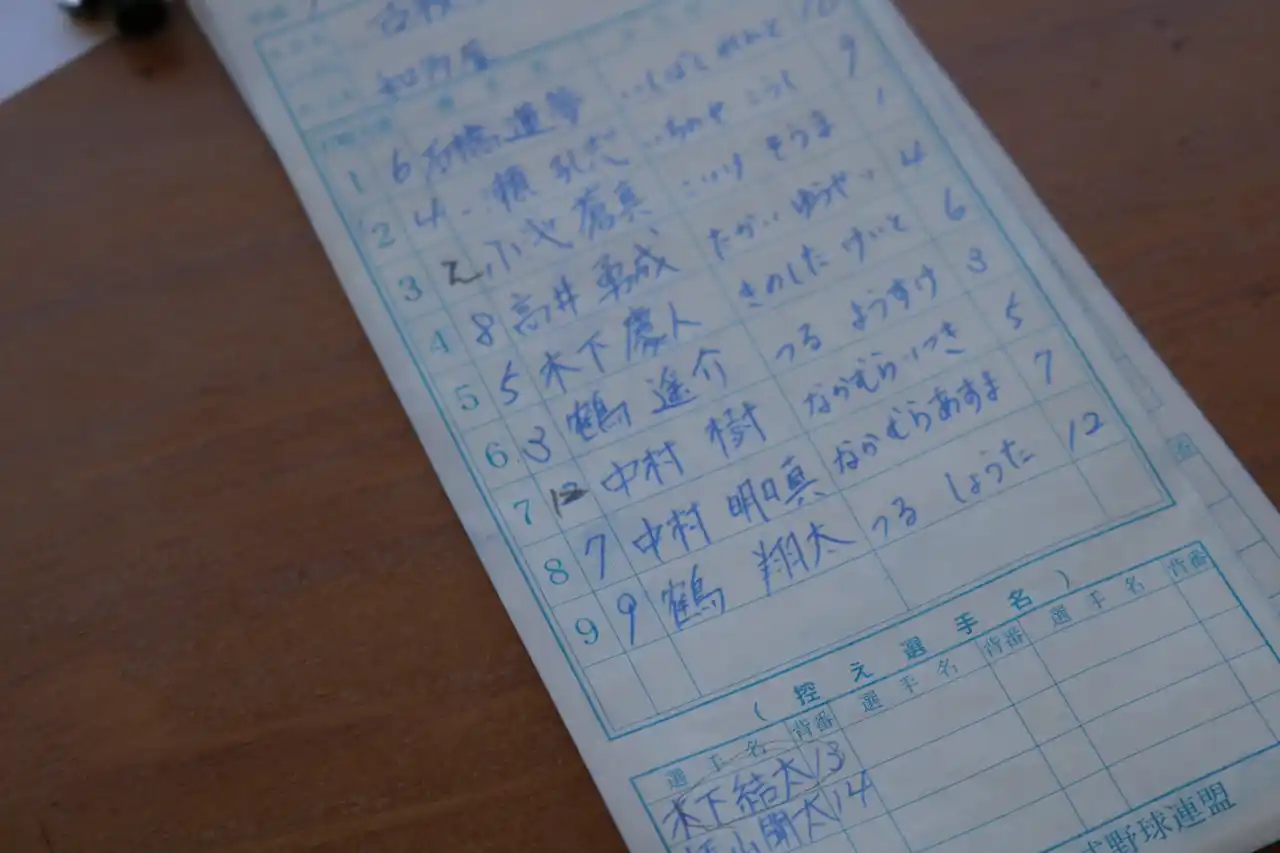 1 6 石橋蓮夢 いしばし れんと 10
2 4 一槇 孔志 いちの 9
3 蒼真 こいけ そうま 1
4 8 高井 勇成 たかい ゆうせい 4
5 5 木下 慶人 きのした けいと 6
6 3 鶴 遥介 つる ようすけ 3
7 12 中村 樹 なかむら いつき 5
8 7 中村 明日真 なかむらあすま 7
9 9 鶴 翔太 つる しょうた 12
( 控え選手名 )
選手名 背番 選手名 背番 選手名 背番
木下結太 13
山開太 14
式野球連盟